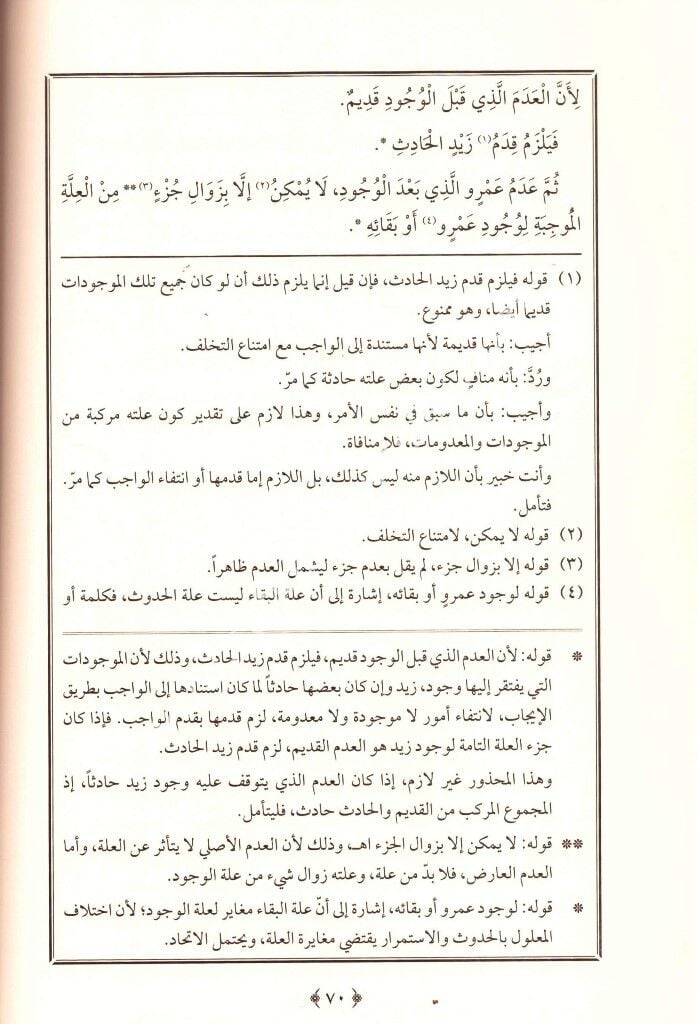 لِأَنَّ الْعَدَمَ الَّذِي قَبْلَ الْوُجُودِ قَدِيمٌ.
فَيَلْزَمُ قِدَمُ(١) زَيْدٍ الْحَادِثِ *.
ثُمَّ عَدَمُ عَمْرٍو الَّذِي بَعْدَ الْوُجُودِ، لَا يُمْكِنُ(٢) إِلَّا بِزَوَالِ جُزْءٍ(٣)** مِنْ الْعِلَّةِ
الْمُوجِبَةِ لِوُجُودِ عَمْرٍو(٤) أَوْ بَقَائِهِ *.
(١) قوله فيلزم قدم زيد الحادث، فإن قيل إنما يلزم ذلك أن لو كان جميع تلك الموجودات
قديما أيضا، وهو ممنوع.
أجيب: بأنها قديمة لأنها مستندة إلى الواجب مع امتناع التخلف.
ورُدَّ: بأنه منافٍ لكون بعض علته حادثة كما مرّ.
وأجيب: بأن ما سبق في نفس الأمر، وهذا لازم على تقدير كون علته مركبة من
الموجودات والمعدومات، فلا منافاة.
وأنت خبير بأن اللازم منه ليس كذلك، بل اللازم إما قدمها أو انتفاء الواجب كما مرّ.
فتأمل.
(٢) قوله لا يمكن، لامتناع التخلف.
(٣) قوله إلا بزوال جزء، لم يقل بعدم جزء ليشمل العدم ظاهراً.
(٤) قوله لوجود عمروٍ أو بقائه، إشارة إلى أن علة البقاء ليست علة الحدوث، فكلمة أو
* قوله: لأن العدم الذي قبل الوجود قديم، فيلزم قدم زيد الحادث، وذلك لأن الموجودات
التي يفتقر إليها وجود، زيد وإن كان بعضها حادثاً لما كان استنادها إلى الواجب بطريق
الإيجاب، لانتفاء أمور لا موجودة ولا معدومة، لزم قدمها بقدم الواجب. فإذا كان
جزء العلة التامة لوجود زيد هو العدم القديم، لزم قدم زيد الحادث.
وهذا المحذور غير لازم، إذا كان العدم الذي يتوقف عليه وجود زيد حادثاً، إذ
المجموع المركب من القديم والحادث حادث، فليتأمل.
** قوله: لا يمكن إلا بزوال الجزء اهـ، وذلك لأن العدم الأصلي لا يتأثر عن العلة، وأما
العدم العارض، فلا بدّ من علة، وعلته زوال شيء من علة الوجود.
* قوله: لوجود عمرو أو بقائه، إشارة إلى أنّ علة البقاء مغاير لعلة الوجود؛ لأن اختلاف
المعلول بالحدوث والاستمرار يقتضي مغايرة العلة، ويحتمل الاتحاد.
﴿ ٧٠ ﴾